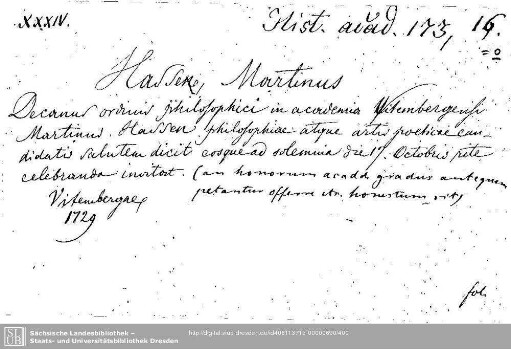 XXXIV.
Hist. acad. 173, 16.
Hassen, Martinus
Decanus ordinis philosophici in academia Vitembergensi
Martinus Hassen philosophiae atque artis poeticae can-
didatis salutem dicit eosque ad solemnia die 17. Octobris rite
celebranda invitat. (an honorum acadd. gradus antequam
petantur offerre etc. honestum sit)
Vitembergae,
1729
fol.
SLUB
Sächsische Landesbibliothek –
Staats- und Universitätsbibliothek Dresden